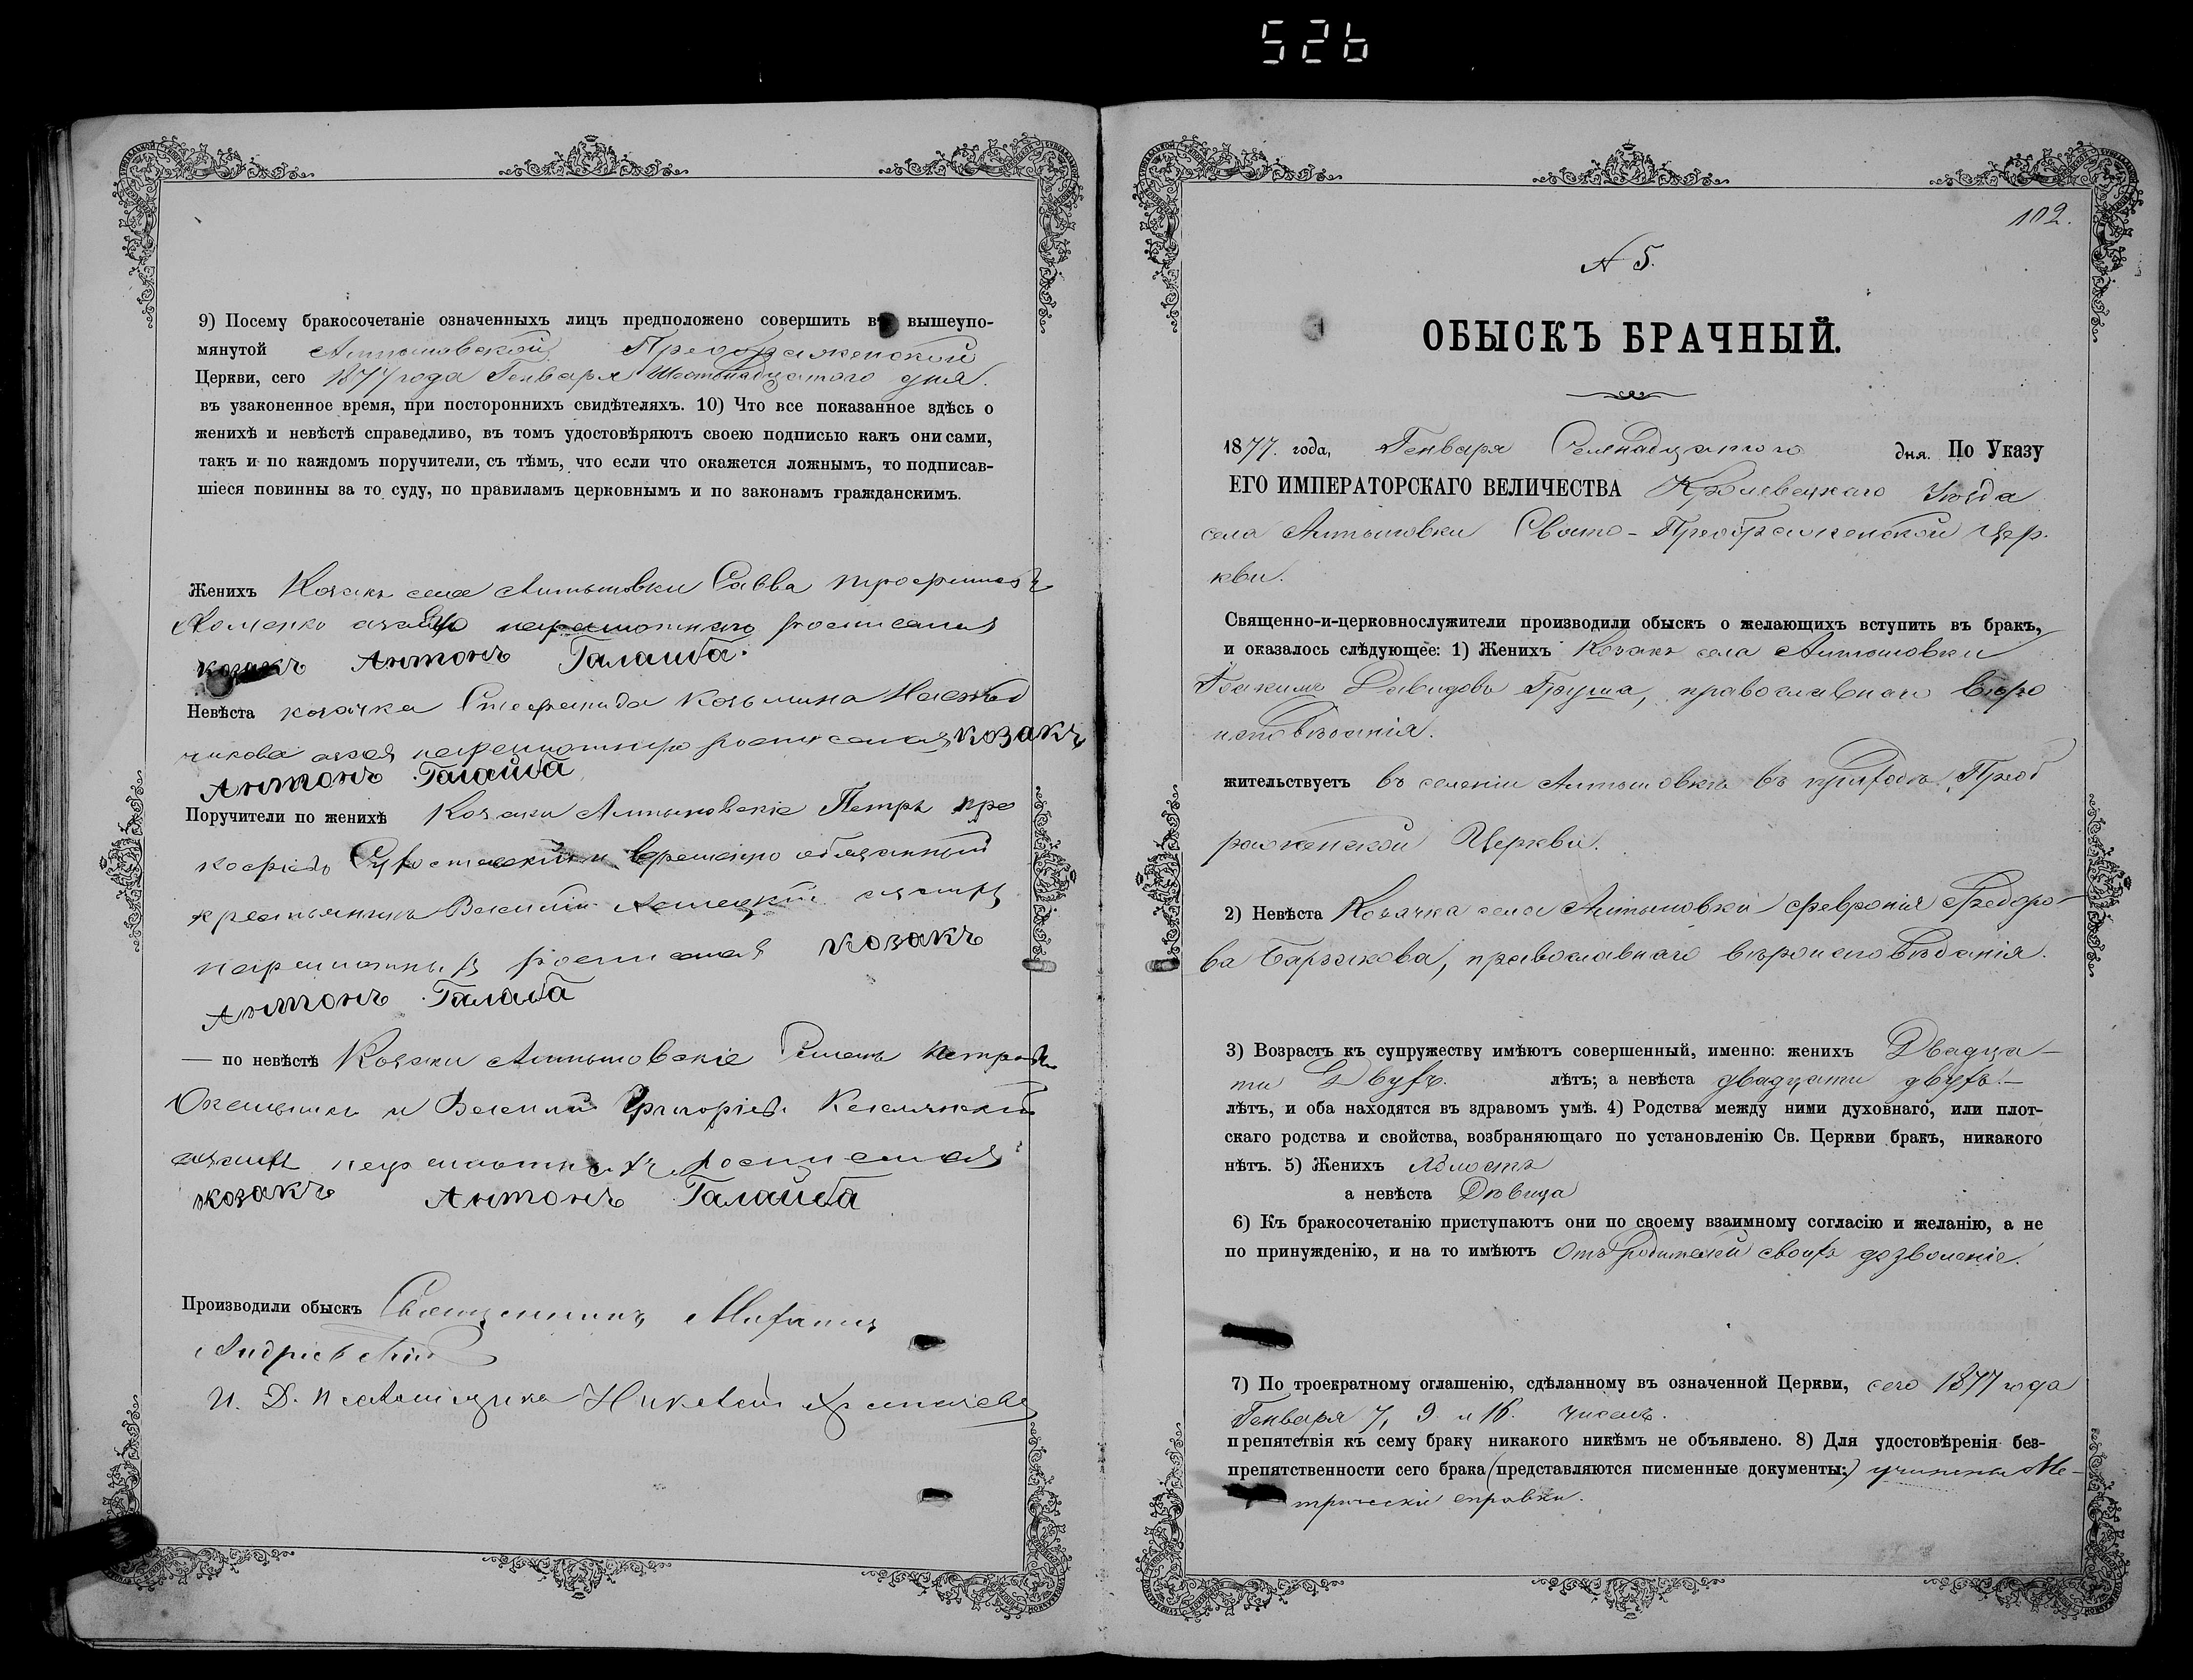 526
9) Посему бракосочетаніе означенныхъ лицъ предположено совершить въ вышеупо-
мянутой Алтыновской Преображенской
Церкви, сего 1877 года Генваря Шестьнадцатого дня.
въ узаконенное время, при постороннихъ свидѣтеляхъ. 10) Что все показанное здѣсь о
женихѣ и невѣстѣ справедливо, въ томъ удостовѣряютъ своею подписью какъ они сами,
такъ и по каждомъ поручители, съ тѣмъ, что если что окажется ложнымъ, то подписав-
шіеся повинны за то суду, по правиламъ церковнымъ и по законамъ гражданскимъ.
Женихъ Козакъ села Алтыновки Савва
Хоменко а росписался
козакъ Антонъ Галайба.
Невѣста козачка Стефанида Козьмина
росписался козакъ
Антонъ Галайба
Поручители по женихѣ Козаки Алтыновскіе Петръ Про
кофіевъ и временно обязанный
крестьянинъ Василій
неграмотныхъ росписался козакъ
Антонъ Галайба
— по невѣстѣ Козаки Алтыновскіе Семенъ Петровъ
и Василій Григоріевъ
неграмотныхъ росписался
козакъ Антонъ Галайба
Производили обыскъ Священникъ Михаилъ
Андріевскій
И. Д. Псаломщика Николай
102.
№ 5.
ОБЫСКЪ БРАЧНЫЙ.
1877. года, Генваря Семнадцатого дня. По Указу
ЕГО ИМПЕРАТОРСКАГО ВЕЛИЧЕСТВА Кролевецкаго Уѣзда
села Алтыновки Свято-Преображенской Цер-
кви.
Священно-и-церковнослужители производили обыскъ о желающихъ вступить въ бракъ,
и оказалось слѣдующее: 1) Женихъ Козакъ села Алтыновки
Іоакимъ Давидовъ Груша, православнаго вѣро
исповѣданія.
жительствуетъ въ селеніи Алтыновкѣ въ приходѣ Преоб
раженской Церкви.
2) Невѣста Козачка села Алтыновки Февронія Федоро-
ва Барзакова, православнаго вѣроисповѣданія.
3) Возрастъ къ супружеству имѣютъ совершенный, именно: женихъ Двадца-
ти Двухъ. лѣтъ; а невѣста двадцати двухъ.—
лѣтъ, и оба находятся въ здравомъ умѣ. 4) Родства между ними духовнаго, или плот-
скаго родства и свойства, возбраняющаго по установленію Св. Церкви бракъ, никакого
нѣтъ. 5) Женихъ Холостъ
а невѣста Дѣвица
6) Къ бракосочетанію приступаютъ они по своему взаимному согласію и желанію, а не
по принужденію, и на то имѣютъ Отъ Родителей своихъ дозволеніе.
7) По троекратному оглашенію, сдѣланному въ означенной Церкви, сего 1877 года
Генваря 7, 9 и 16. числъ.
препятствія къ сему браку никакого никѣмъ не объявлено. 8) Для удостовѣренія без-
препятственности сего брака (представляются писменные документы:) учинены Ме-
трическіи справки.